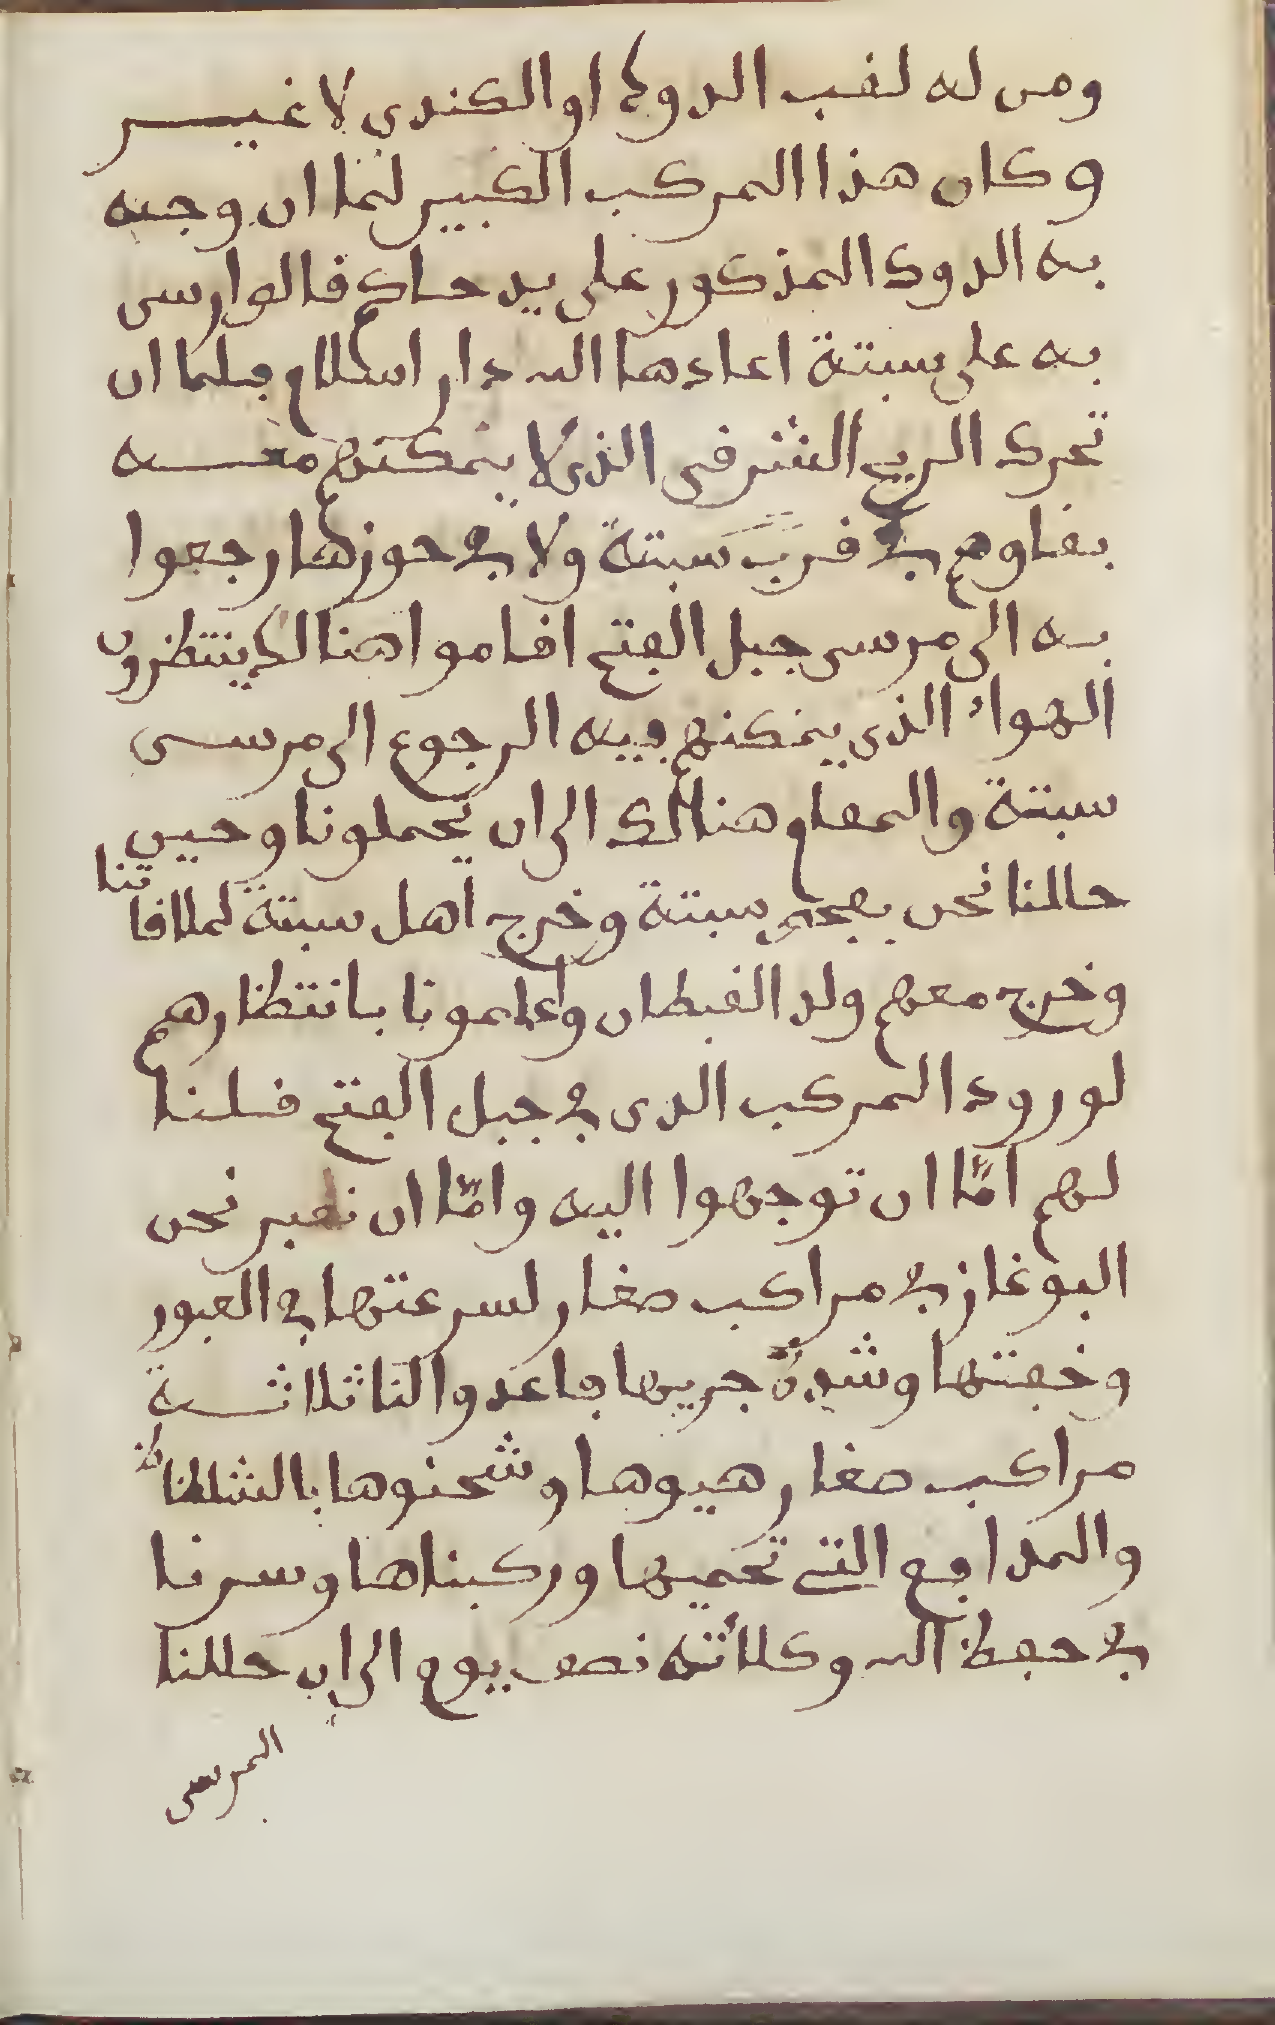 ومن له لقب الدوك او الكندي لا غير
وكان هذا المركب الكبير لما ان وجه
به الدوك المذكور على يد حاكم فالو ارسى
به على سبتة اعادها الله دار اسلام فلما ان
تحرك الريح الشرقي الذي لا يمكنهم معه
بقاوهم في قرب سبتة ولا في حوزها رجعوا
به الى مرسى جبل الفتح اقاموا هنالك ينتظرون
الهواء الذي يمكنهم فيه الرجوع الى مرسى
سبتة والمقام هنالك الى ان يحملونا وحين
حللنا نحن سبتة وخرج اهل سبتة لملاقاتنا
وخرج معهم ولد القبطان واعلمونا بانتظارهم
لورود المركب الذي في جبل الفتح قلنا
لهم امّا ان توجهوا اليه وامّا ان نعبر نحن
البوغاز في مراكب صغار لسرعتها في العبور
وخفتها وشدة جريها فاعدوا لنا ثلاثة
مراكب صغار هيوها وشحنوها بالشلظاظ
والمدافع التي تحميها وركبناها وسرنا
في حفظ الله وكلائته نصف يوم الى ان حللنا
المرسى